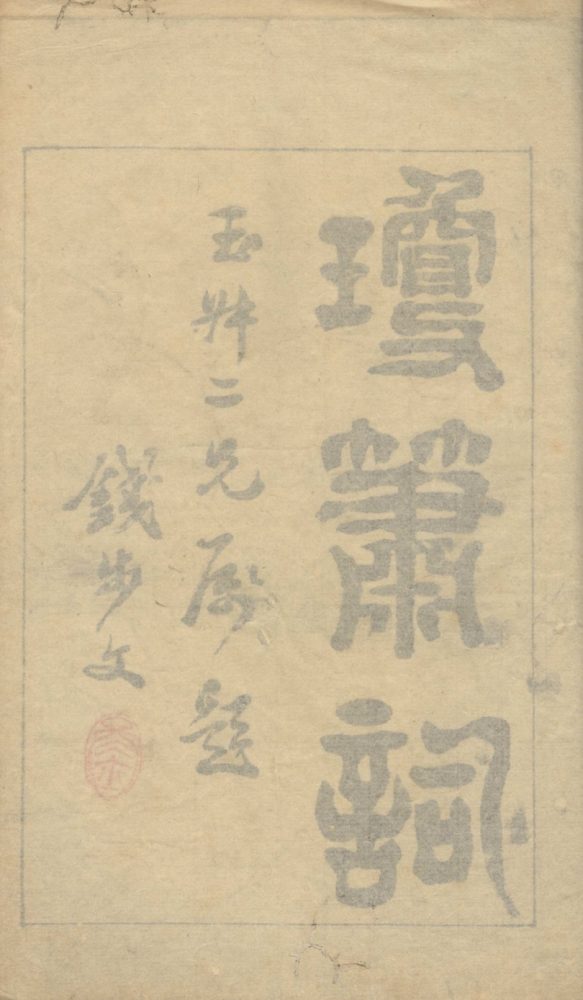 瓊簫詞
玉㸚二兄屬題
錢步文